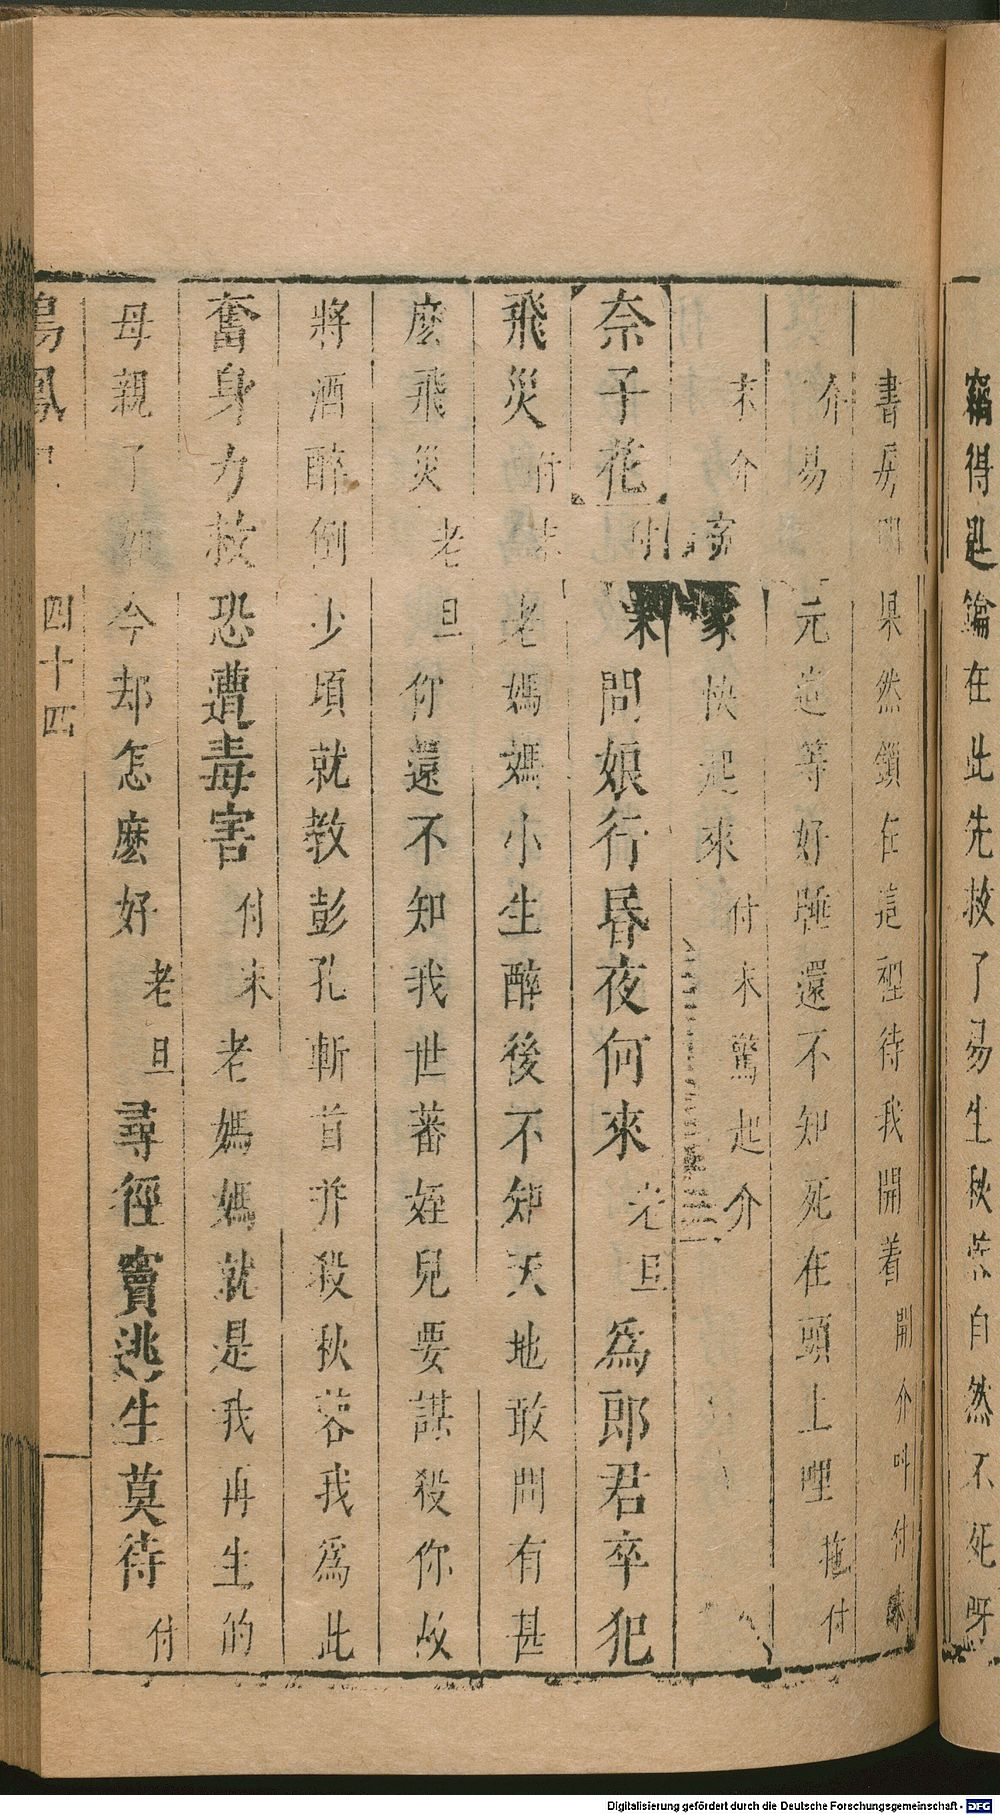 竊得匙鑰在此先救了易生秋蓉自然不死呀
書房門果然鎖在這裡待我開着開介叫付末
介易元這等好睡還不知死在頭上哩拖付
末介快起來付末驚起介
奈子花問娘行昏夜何來老旦為郎君卒犯
飛災付末老媽媽小生醉後不知天地敢問有甚
麽飛災老旦你還不知我世蕃姪兒要謀殺你故
將酒醉倒少頃就教彭孔斬首并殺秋蓉我為此
奮身力救恐遭毒害付末老媽媽就是我再生的
母親了如今却怎麽好老旦尋徑竇逃生莫待付
鳴鳳記
四十四
Digitalisierung gefördert durch die Deutsche Forschungsgemeinschaft - DFG